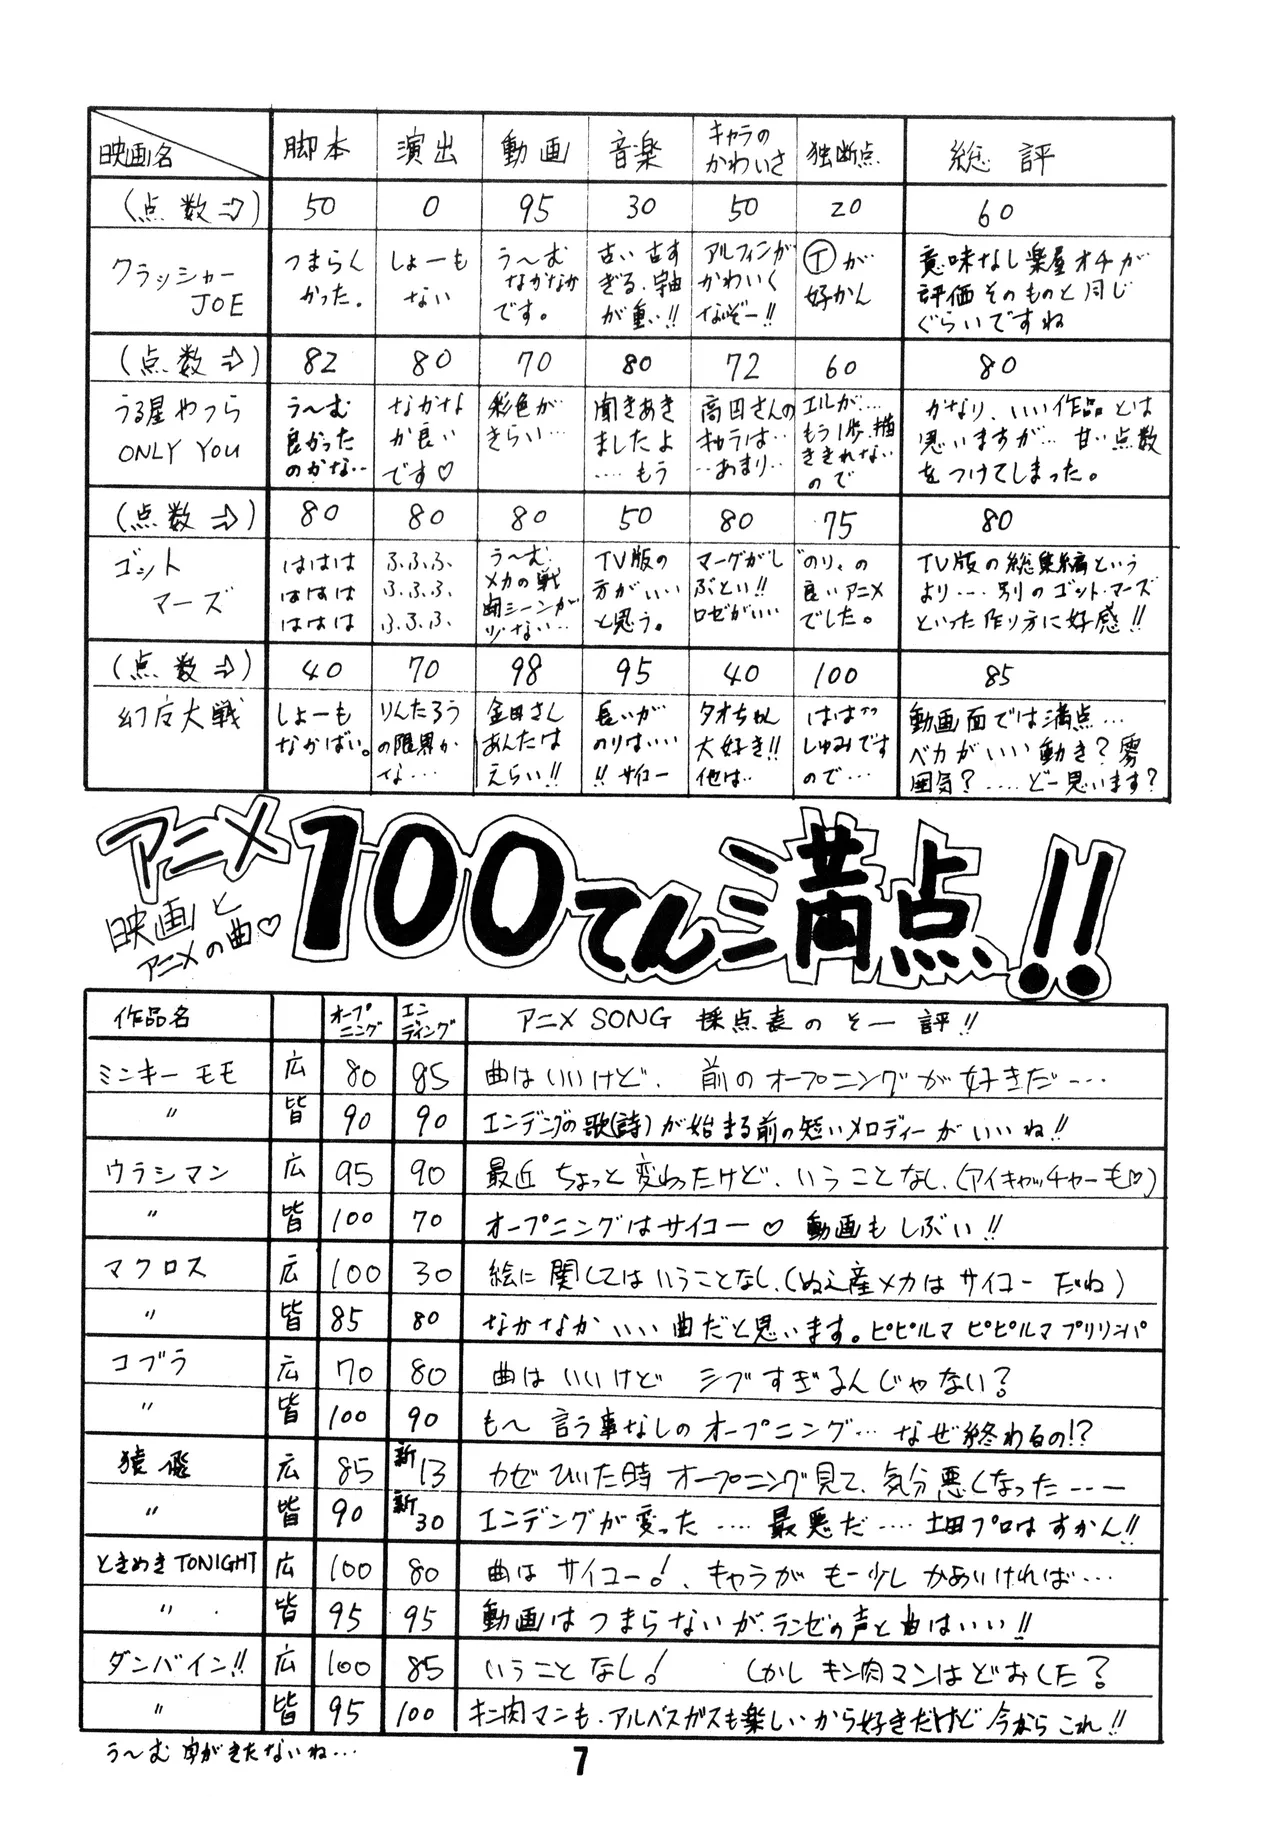 映画名 脚本 演出 動画 音楽 キャラのかわいさ 独断点 総評
(点数⇒) 50 0 95 30 50 20 60
クラッシャー
JOE
つまらん
かった。
しょーも
ない
う〜む
なかなか
です。
古い古す
ぎる、宇宙
が重い!!
アルフィンが
かわいく
ないぞー!!
Ⓣが
好かん
意味なし楽屋オチが
評価そのものと同じ
ぐらいですね
(点数⇒) 82 80 70 80 72 60 80
うる星やつら
ONLY YOU
う〜む
良かった
のかな…
なかな
か良い
です♡
彩色が
きらい…
聞きあき
ましたよ
‥‥もう
高田さんの
キャラは‥
‥あまり‥
エルが…
もう1歩、描
ききれない
ので
かなり、いい作品とは
思いますが… 甘い点数
をつけてしまった。
(点数⇒) 80 80 80 50 80 75 80
ゴット
マーズ
ははは
ははは
ははは
ふ,ふ,ふ,
ふ,ふ,ふ,
ふ,ふ,ふ,
う〜む
メカの戦
闘シーンが
少ない…
TV版の
方がいい
と思う。
マーグがし
ぶとい!!
ロゼがいい
"のり"の
良いアニメ
でした。
TV版の総集編という
より‥‥別のゴット・マーズ
といった作り方に好感!!
(点数⇒) 40 70 98 95 40 100 85
幻魔大戦
しょーも
なかばい。
りんたろう
の限界か
な…
金田さん
あんたは
えらい!!
長いが
のりはいい
!! サイコー
タオちゃん
大好き!!
他は‥
はは‥
しゅみです
ので…
動画面では満点…
ベガがいい動き?雰
囲気?‥‥ど一思います?
アニメ100てん満点!!
映画と
アニメの曲♡
作品名 オープニング エンディング アニメSONG 採点表のそー評!!
ミンキーモモ 広 80 85 曲はいいけど、前のオープニングが好きだ…
〃 皆 90 90 エンデングの歌(詩)が始まる前の短いメロディーがいいね!!
ウラシマン 広 95 90 最近ちょっと変わったけど、いうことなし、(アイキャッチャーも♡)
〃 皆 100 70 オープニングはサイコー♡ 動画もしぶい!!
マクロス 広 100 30 絵に関してはいうことなし、(ぬえ産メカはサイコーだね)
〃 皆 85 80 なかなかいい曲だと思います。ピピルマピピルマプリリンパ
コブラ 広 70 80 曲はいいけど シブすぎるんじゃない?
〃 皆 100 90 も〜言う事なしのオープニング… なぜ終わるの!?
猿飛 広 85 新13 カゼひいた時オープニング見て、気分悪くなった…
〃 皆 90 新30 エンデングが変った‥‥最悪だ‥‥土田プロはすかん!!
ときめきTONIGHT 広 100 80 曲はサイコー!、キャラがもー少しかあいければ…
〃 皆 95 95 動画はつまらないが、ランゼの声と曲はいい!!
ダンバイン!! 広 100 85 いうことなし! しかしキン肉マンはどおした?
〃 皆 95 100 キン肉マンも、アルベガスも楽しいから好きだけど今ならこれ!!
う〜む 字がきたないね…
7